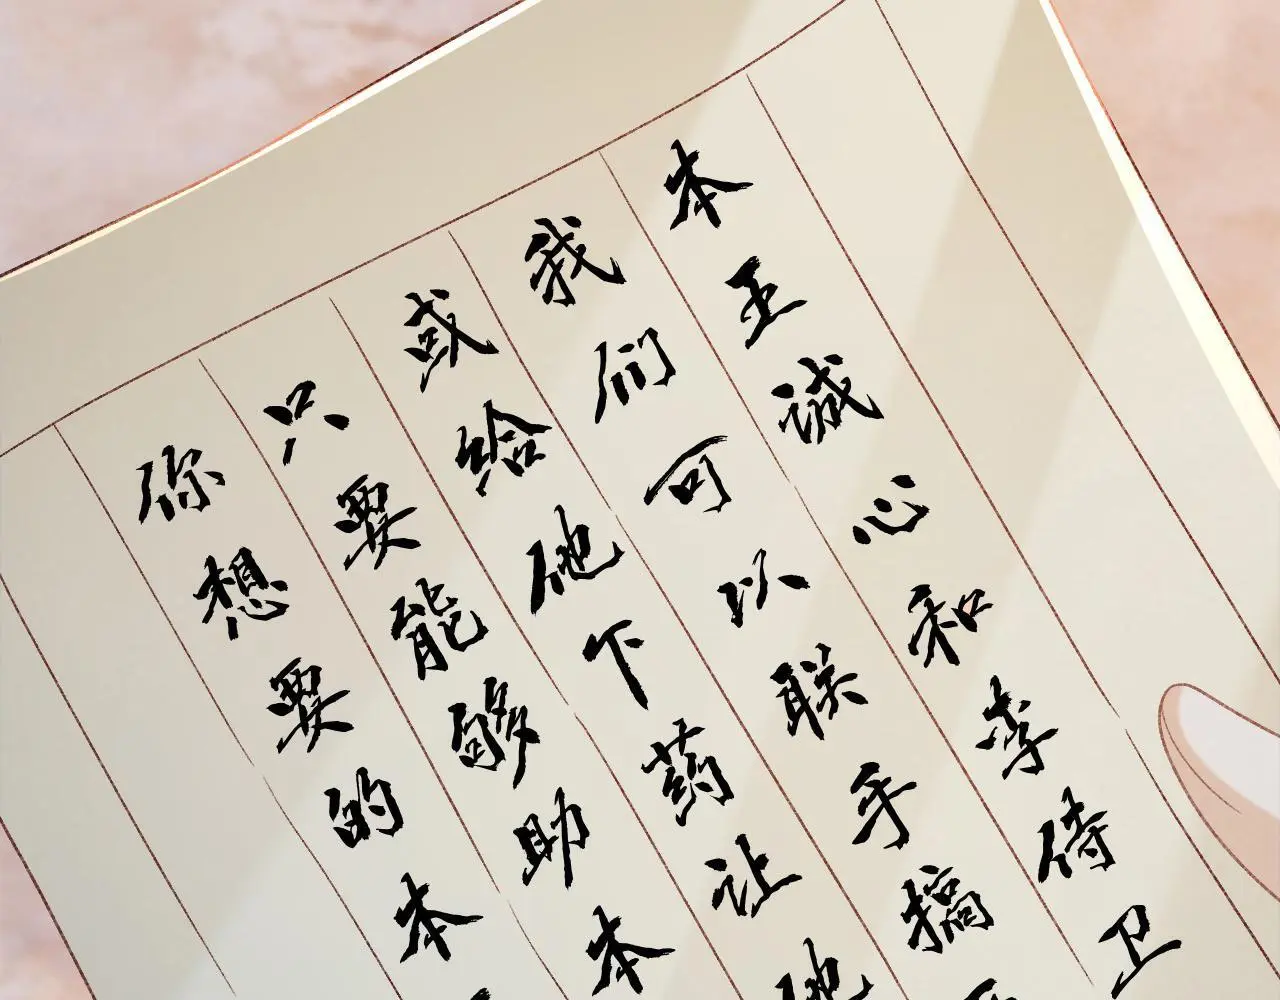 本王诚心和李侍卫
我们可以联手搞
或给他下药让他
只要能够助本
你想要的本